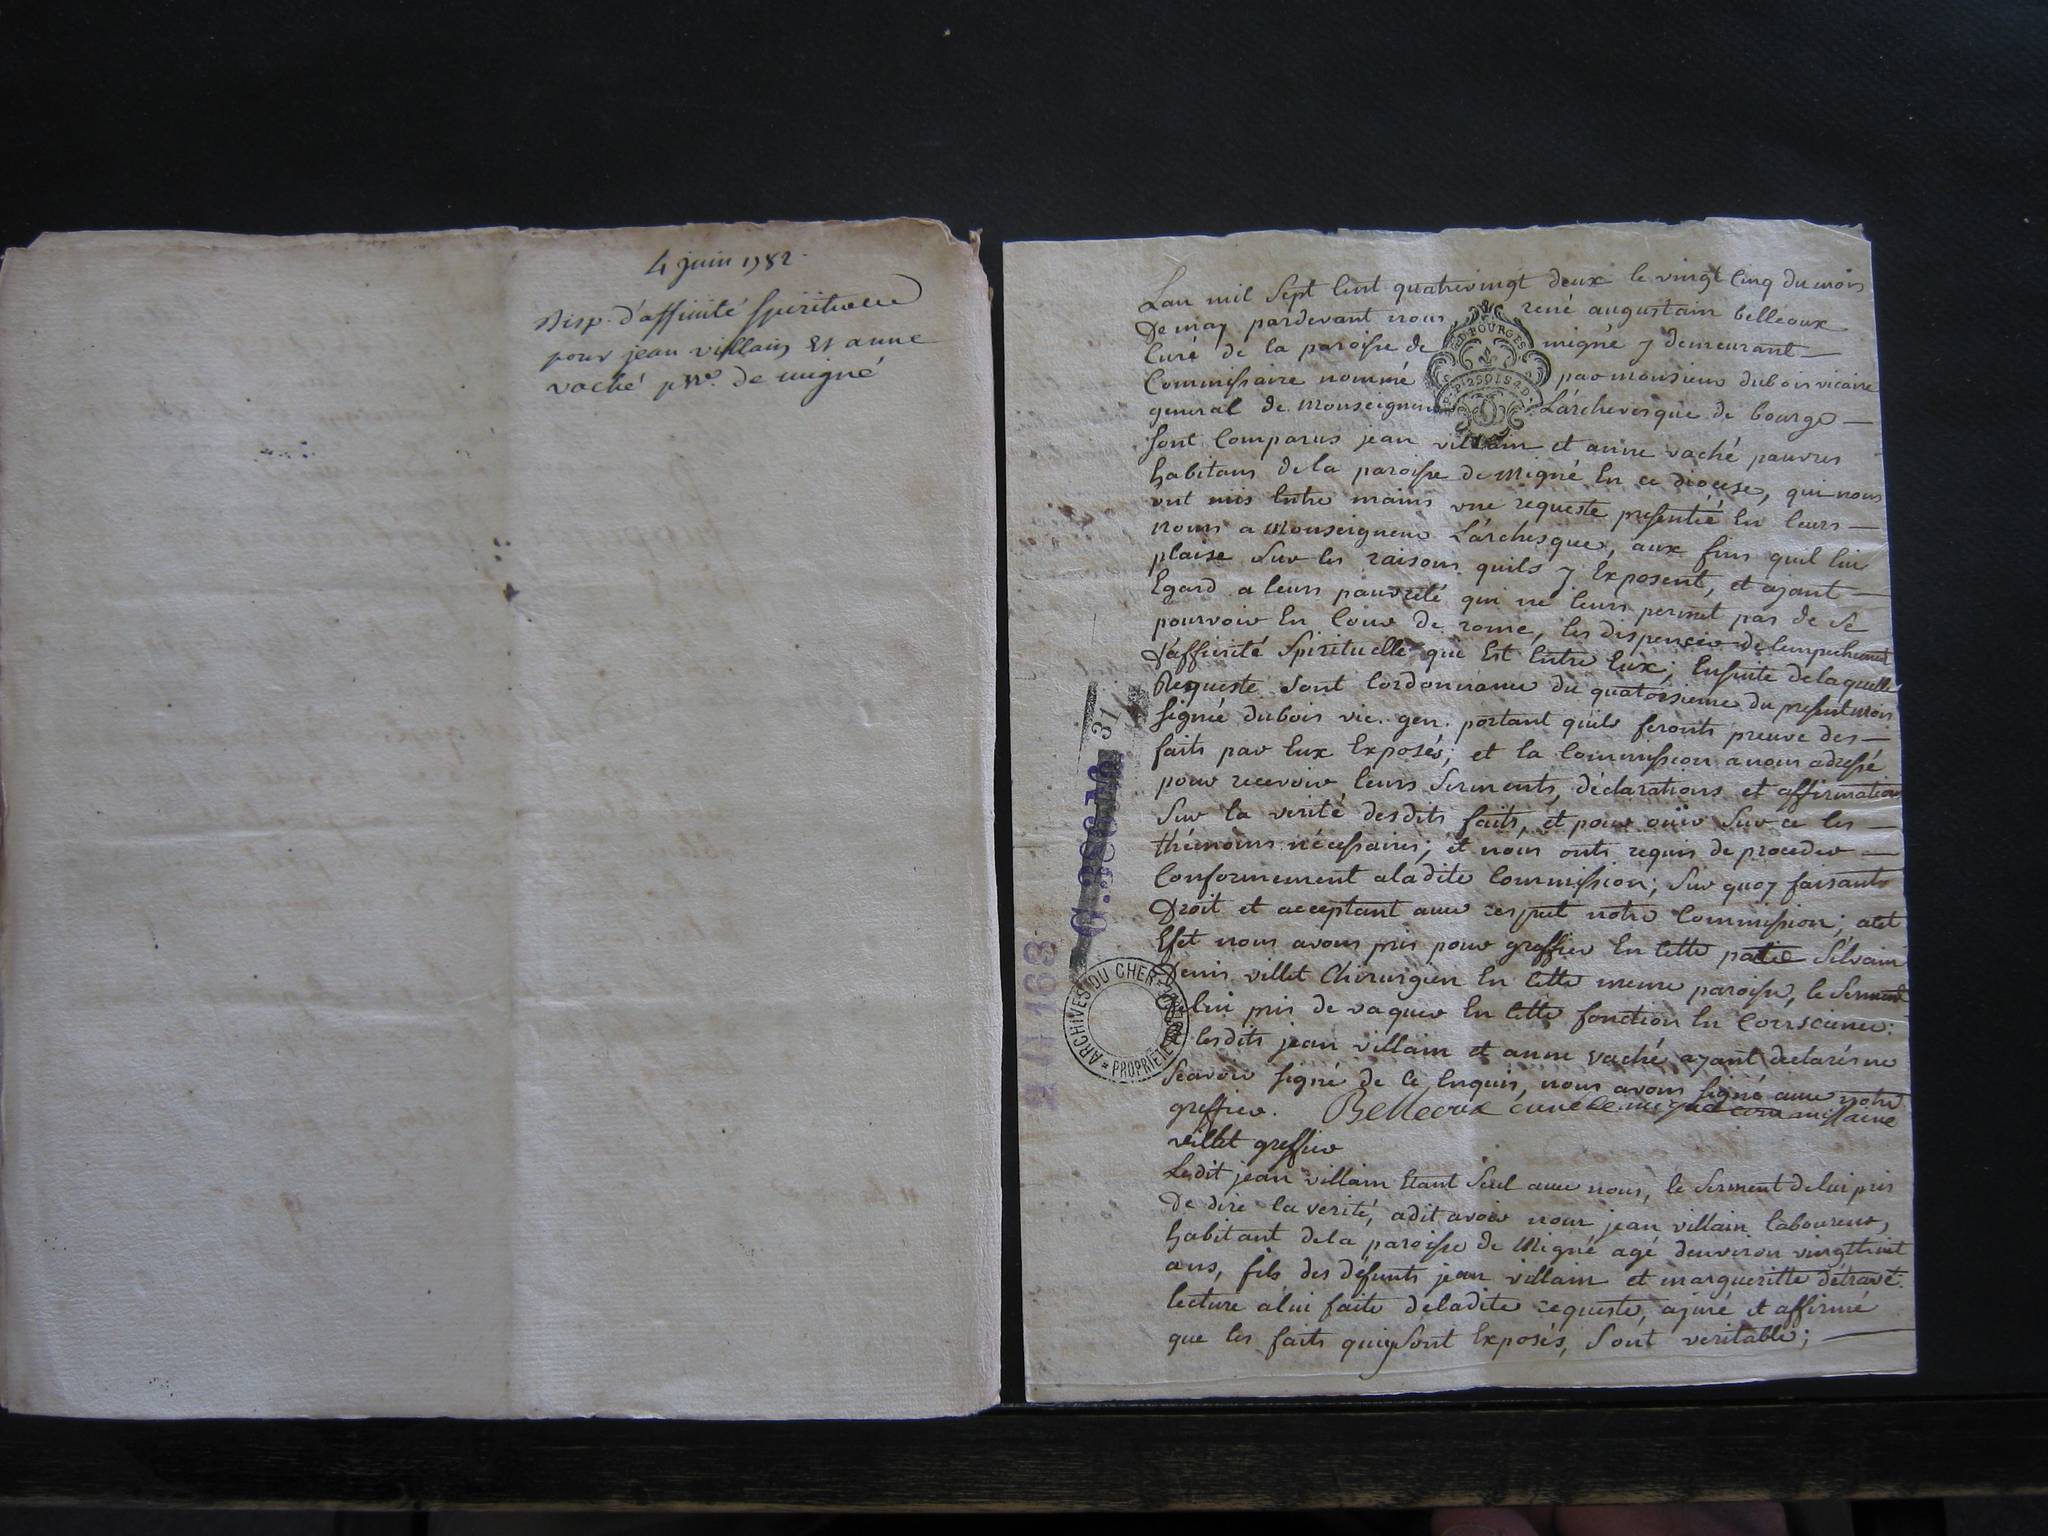 4 juin 1782.
Disp. d'affinité spirituelle
pour jean villain et anne
vaché p.sse de migné
Lan mil sept cent quatrevingt deux le vingt cinq du mois
De may pardevant nous rené augustain belleoux
curé de la paroisse de migné y demeurant —
Commissaire nommé par monsieur dubois vicaire
general de Monseigneur L'archevesque de bourge —
sont comparus jean villain et anne vaché pauvres
habitans de la paroisse de Migné en ce diocese, qui nous
ont mis entre mains une requeste presentée en leurs —
noms a Monseigneur L'archesque, aux fins quil lui
plaise sur les raisons quils y exposent, et ajant —
Egard a leurs pauvreté qui ne leurs permet pas de se
pourvoir en cour de rome, les dispencer de lempechement
d'affinité spirituelle que est entre eux; Ensuite de laquelle
Requeste sont l'ordonnance du quatorsieme du present mois
signée dubois vic. gen. portant quils feronts preuve des —
faits par eux exposés; et la commission a nous adressé
pour recevoir leurs serments, déclarations et affirmations
sur la verité desdits faits, et pour ouir sur ce les —
thémoins nécessaires; et nous onts requis de proceder —
conformement a ladite commission; sur quoy faisants
Droit et acceptant avec respect notre commission; a cet
Efet nous avons pris pour greffier en cette partie Silvain
Denis villet Chirurgien en cette meme paroisse, le serment
de lui pris de vaquer en cette fonction en conscience:
lesdits jean villain et anne vaché ayant declarés ne
scavoir signé de ce enquis, nous avons signé avec notre
greffier. Belleoux curé de migné commissaire
villet greffier
Ledit jean villain etant seul avec nous, le serment de lui pris
De dire la verité, a dit avoir nom jean villain laboureur,
habitant de la paroisse de Migné agé denviron vingthuit
ans, fils des défunts jean villain et margueritte détravé.
lecture a lui faite de ladite requeste, a juré et affirmé
que les faits qui y sont exposés, sont veritable; —
G. DE BOURGES
ARCHIVES DU CHER
PROPRIÉTÉ
31
2 H 168